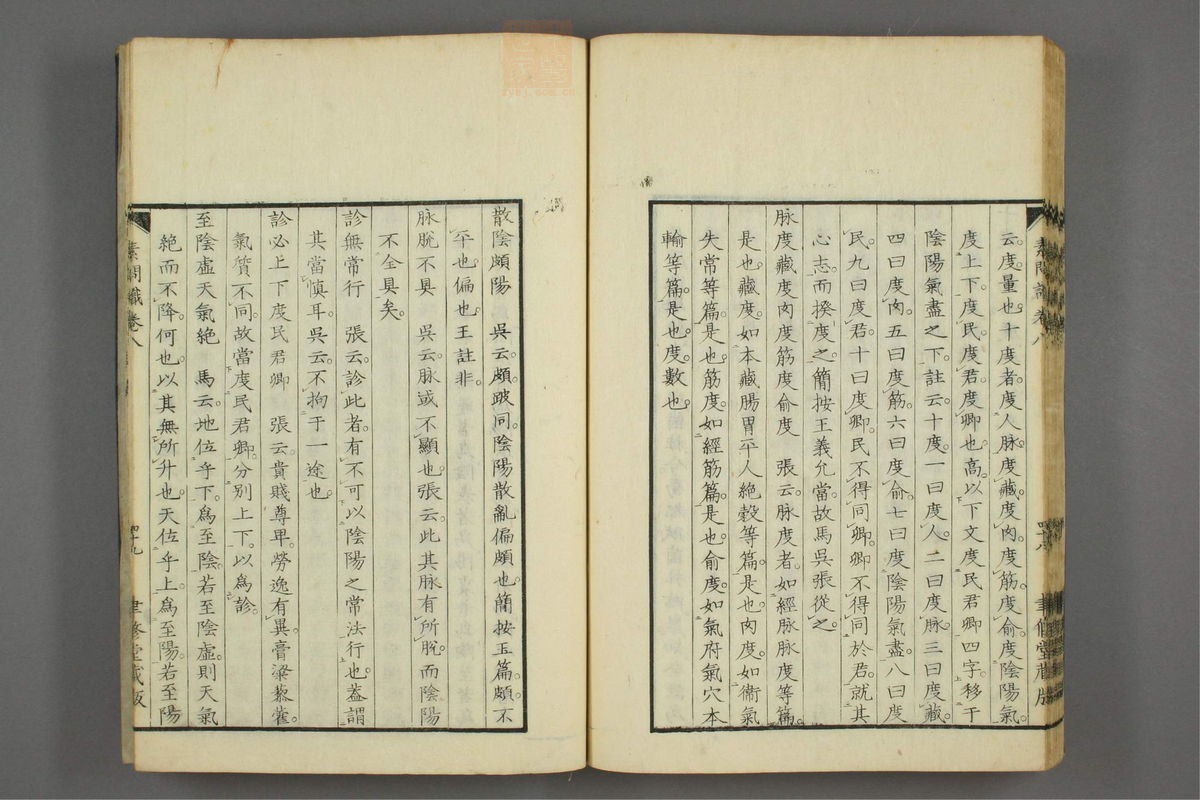 云度量也十度者度人脉度藏度肉度筋度俞度陰陽氣
度上下度民度君度卿也高以下文度民君卿四字移于
陰陽氣盡之下註云十度一曰度人二曰度脉三曰度藏
四曰度肉五曰度筋六曰度俞七曰度陰陽氣盡八曰度
民九曰度君十曰度卿民不得同卿卿不得同於君就其
心志而揆度之簡按王義允當故馬吳張從之
脉度藏度肉度筋度俞度 張云脉度者如經脉脉度等篇
是也藏度如本藏腸胃平人絶穀等篇是也肉度如衞氣
失常等篇是也筋度如經筋篇是也俞度如氣府氣穴本
輸等篇是也度數也
素問識卷八 四十八 聿修堂藏版
散陰頗陽 吳云頗跛同陰陽散亂偏頗也簡按玉篇頗不
平也偏也王註非
脉脫不具 吳云脉或不顯也張云此其脉有所脫而陰陽
不全具矣
診無常行 張云診此者有不可以陰陽之常法行也蓋謂
其當慎耳吳云不拘于一途也
診必上下度民君卿 張云貴賤尊卑勞逸有異膏粱藜藿
氣質不同故當度民君卿分別上下以爲診
至陰虛天氣絶 馬云地位乎下爲至陰若至陰虛則天氣
絶而不降何也以其無所升也天位乎上爲至陽若至陽
素問識卷八 四十九 聿修堂藏版